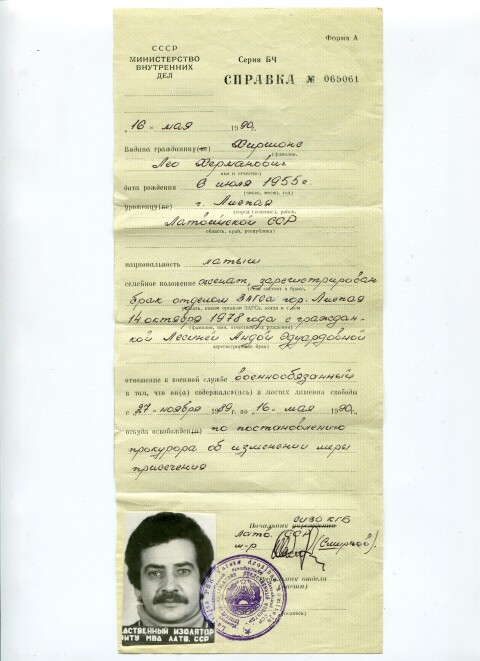 Форма А
СССР
МИНИСТЕРСТВО
ВНУТРЕННИХ
ДЕЛ
Серия БЧ
СПРАВКА № 065061
„16" мая 1990г.
Выдана гражданину(ке) Хиршонс
(фамилия,
Лео Хермановиг
имя и отчество)
дата рождения 6 июля 1955 г.
(число, месяц, год)
уроженцу(ке) г. Лиепая
(город (селение), район,
Латвийской ССР
область, край, республика)
национальность латыш
семейное положение женат, зарегистрирован
брак отделом ЗАГСа гор. Лиепая
14 октября 1978 года с граждан-
(фамилия, имя, отчество, год рождения)
кой Лесиней Андой Эдуардовной
зарегистрирован брак)
отношение к военной службе военнообязанный
в том, что он(а) содержался(ась) в местах лишения свободы
с „27" ноября 1989г. по „16" мая 1990г.
откуда освобожден(а) по постановлению
прокурора об изменении меры
пресечения
СИЗО КГБ
Начальник учреждения
Латв. ССР
м-р (Смирнов).
отдела
(подпись)
ДСТВЕННЫЙ ИЗОЛЯТОР
РИТУ МВД ЛАТВ. ССР